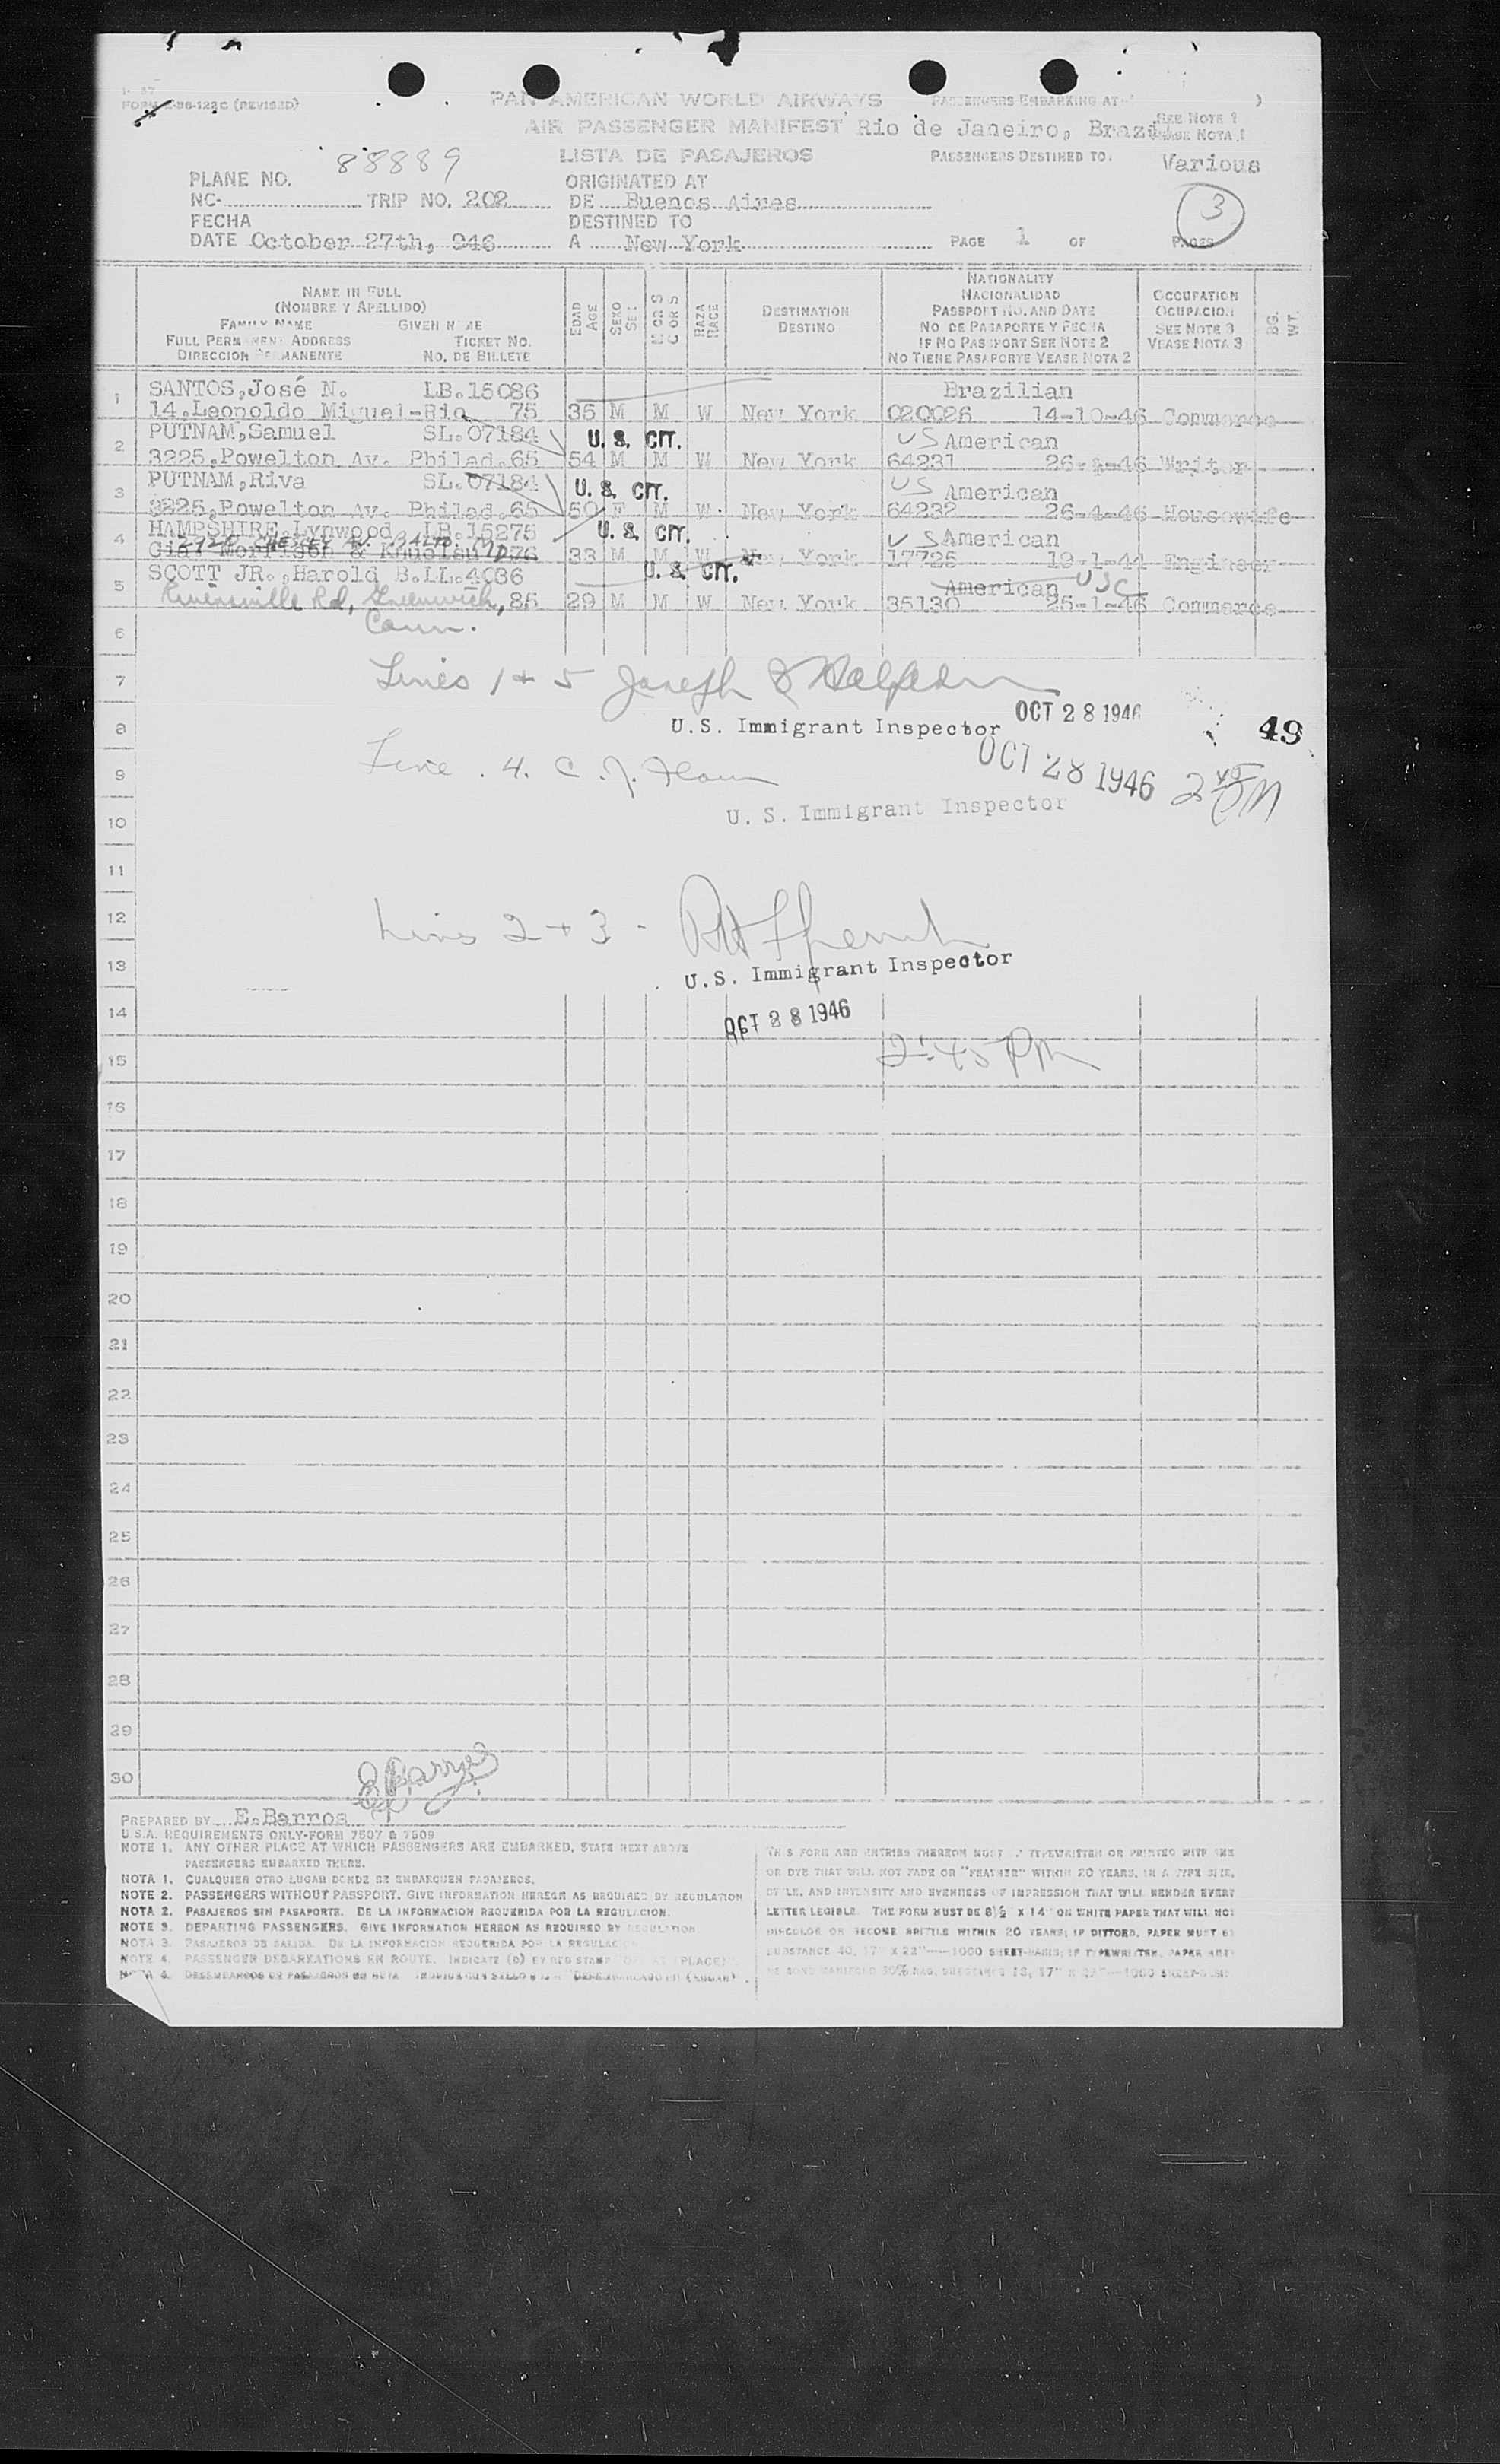 FORM (REVISED)
PAN AMERICAN WORLD AIRWAYS
PASSENGERS EMBARKING AT
AIR PASSENGER MANIFEST Rio de Janeiro, Brazil
SEE NOTE 1
VEASE NOTA 1
88889
LISTA DE PASAJEROS
PASSENGERS DESTINED TO. Various
PLANE NO.
ORIGINATED AT
NC- TRIP NO. 202 DE Buenos Aires
3
FECHA
DESTINED TO
DATE October 27th, 946 A New York PAGE 1 OF PAGES
NAME IN FULL
(NOMBRE Y APELLIDO)
FAMILY NAME GIVEN NAME
FULL PERMANENT ADDRESS TICKET NO.
DIRECCION PERMANENTE NO. DE BILLETE
EDAD
AGE
SEXO
SEX
M OR S
C OR S
RAZA
RACE
DESTINATION
DESTINO
NATIONALITY
NACIONALIDAD
PASSPORT NO. AND DATE
NO. DE PASAPORTE Y FECHA
IF NO PASSPORT SEE NOTE 2
NO TIENE PASAPORTE VEASE NOTA 2
OCCUPATION
OCUPACION
SEE NOTE 3
VEASE NOTA 3
BG.
WT.
1 SANTOS,José N. LB.15086 Brazilian
14.Leopoldo Miguel-Rio 75 35 M M W New York 020026 14-10-46 Commerce
2 PUTNAM,Samuel SL.07184 U. S. CIT. US American
3225,Powelton Av. Philad.65 54 M M W New York 64231 46 Writer
3 PUTNAM,Riva SL.07184 U. S. CIT. US American
3225,Powelton Av. Philad.65 50 F M W New York 64232 26-4-46 Housewife
4 HAMPSHIRE,Lynwood LB.15275 U. S. CIT. US American
Cia. Morrison & Knudsen 76 33 M M W New York 17725 19-1-44 Engineer
5 SCOTT JR.,Harold B.LL.4036 U. S. CIT. American USC
Rd, Greenwich, 85 29 M M W New York 35130 25-1-46 Commerce
6 Conn.
7 Lines 1 + 5 Joseph
8 U.S. Immigrant Inspector OCT 28 1946
49
9 Line . 4. C. J.
OCT 28 1946 2 45 PM
10 U. S. Immigrant Inspector
11
12 Lines 2 + 3 -
13 U.S. Immigrant Inspector
14 OCT 28 1946
15 2:45 PM
16
17
18
19
20
21
22
23
24
25
26
27
28
29
30 E Barros
PREPARED BY E.Barros
U.S.A. REQUIREMENTS ONLY-FORM 7507 & 7509
NOTE 1. ANY OTHER PLACE AT WHICH PASSENGERS ARE EMBARKED, STATE NEXT ABOVE
PASSENGERS EMBARKED THERE.
NOTA 1. CUALQUIER OTRO LUGAR DONDE SE EMBARQUEN PASAJEROS.
NOTE 2. PASSENGERS WITHOUT PASSPORT. GIVE INFORMATION HEREON AS REQUIRED BY REGULATION
NOTA 2. PASAJEROS SIN PASAPORTE. DE LA INFORMACION REQUERIDA POR LA REGULACION.
NOTE 3. DEPARTING PASSENGERS. GIVE INFORMATION HEREON AS REQUIRED BY REGULATION.
NOTA 3. PASAJEROS DE SALIDA. DE LA INFORMACION REQUERIDA POR LA REGULAC
NOTE 4. PASSENGER DEBARKATIONS EN ROUTE. INDICATE (D) BY RED STAMP (PLACE)
THIS FORM AND ENTRIES THEREON MUST TYPEWRITTEN OR PRINTED WITH INK
OR DYE THAT WILL NOT FADE OR "FEATHER" WITHIN 20 YEARS, IN A TYPE SIZE,
STYLE, AND INTENSITY AND EVENNESS OF IMPRESSION THAT WILL RENDER EVERY
LETTER LEGIBLE. THE FORM MUST BE 8½ X 14" ON WHITE PAPER THAT WILL NOT
DISCOLOR OR BECOME BRITTLE WITHIN 20 YEARS; IF DITTOED, PAPER MUST BE
SUBSTANCE 40, 17" X 22"—1000 SHEET-BASIS; IF TYPEWRITTEN, PAPER MUST